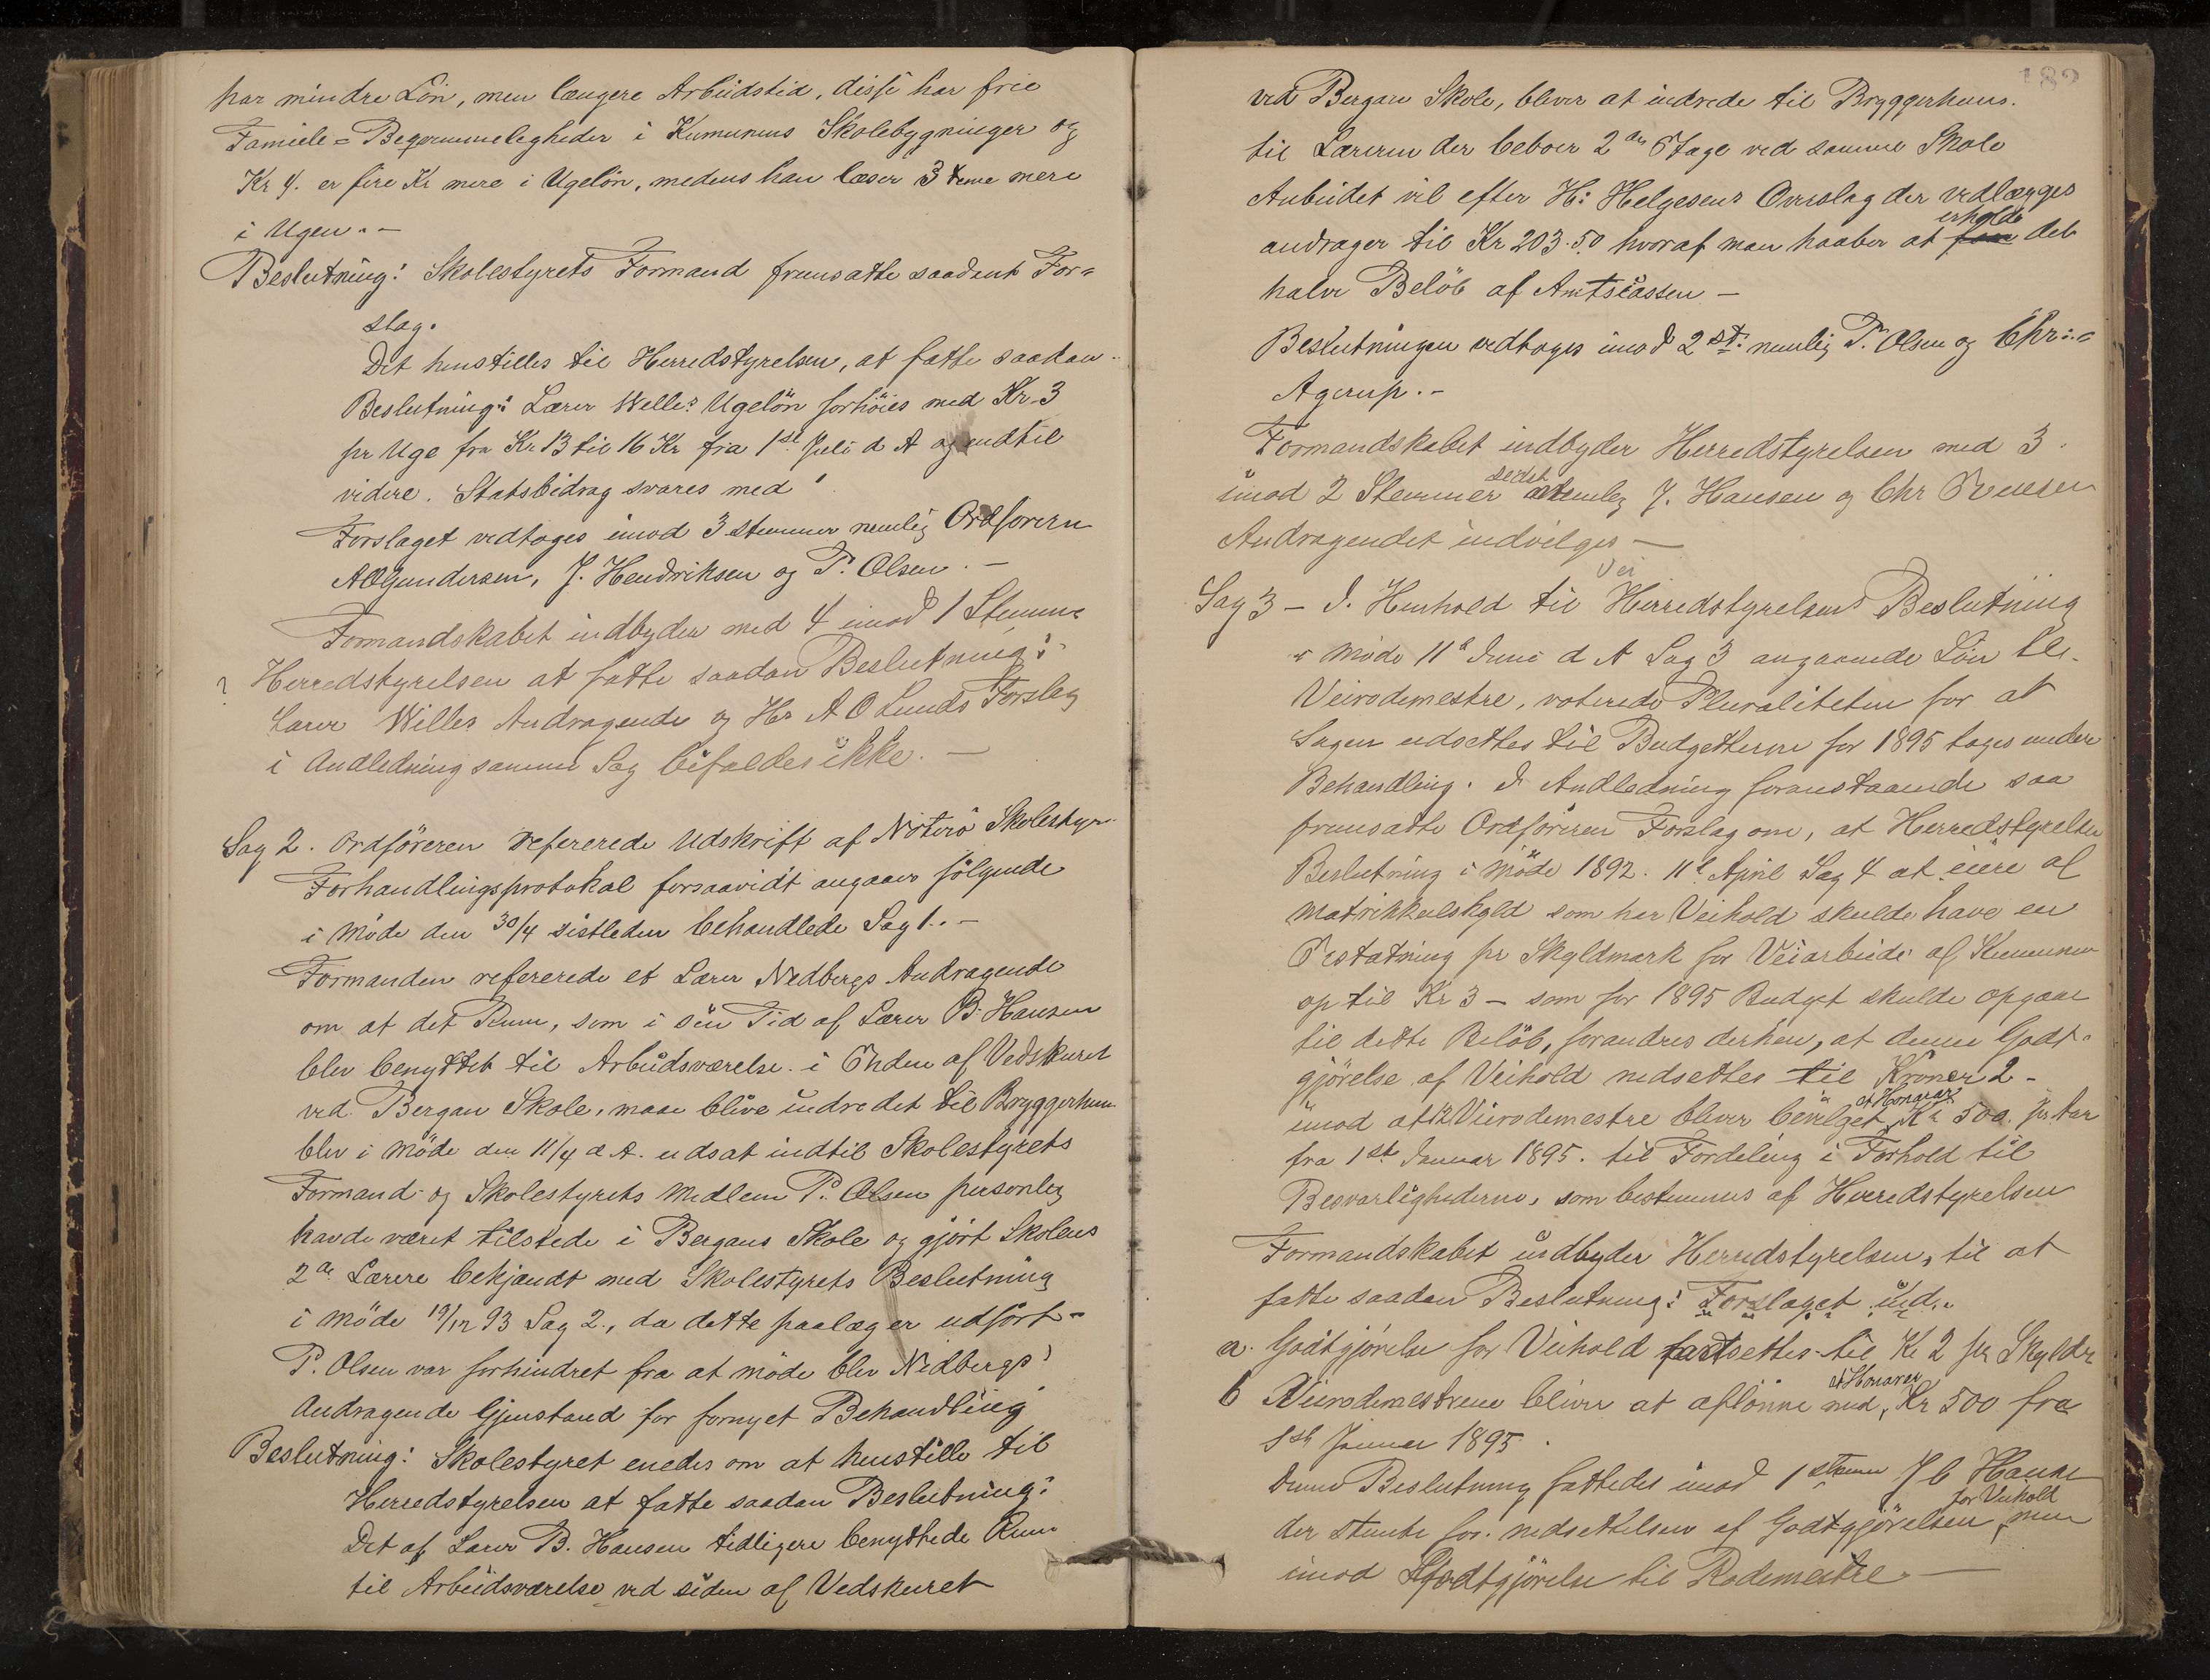 har mindre Lön, men længere Arbeidstid, disse har frie
Familie=Beqvemmeligheder i Kumunens Skolebygninger og
Kr 4. er fire Kr mere i Ugelön, medens han læser 3 Time mere
i Ugen. -
Beslutning: Skolestyrets Formand fremsatte saadant For=
slag.
Det henstilles til Herredstyrelsen, at fatte saadan
Beslutning: Lærer Willes Ugelön forhöies med Kr. 3
pr Uge fra Kr 13 til 16 Kr fra 1st Juli d A og indtil
videre. Statsbidrag svares med
Forslaget vedtoges imod 3 stemmer nemlig Ordföreren
A Gundersen, J. Hendriksen og P. Olsen. -
Formandskabet indbyder med 4 imod 1 Stemme
Herredstyrelsen at fatte saadan Beslutning:
Lærer Willes Andragende og Hr A O Lunds Forslag
i Andledning samme Sag bifaldes ikke. -
Sag 2. Ordföreren refererede Udskrift af Nöterö Skolestyr
Forhandlingsprotokol forsaavidt angaar fölgende
i Möde den 30/4 sistleden behandlede Sag 1. -
Formanden refererede et Lærer Nedbergs Andragende
om at det Rum, som i sin Tid af Lærer B. Hansen
blev benyttet til Arbeidsværelse i Enden af Vedskuret
ved Bergan Skole, maa blive indredet til Bryggerhuus
blev i Möde den 11/4 d. A. udsat indtil Skolestyrets
Formand og Skolestyrets Medlem P. Olsen personlig
havde været tilstede i Bergans Skole og gjört Skolens
2de Lærere bekjendt med Skolestyrets Beslutning
i Möde 19/12 93 Sag 2., da dette paalæg er udfört -
P. Olsen var forhindret fra at möde blev Nedbergs
Andragende Gjenstand for fornyet Behandling
Beslutning: Skolestyret enedes om at henstille til
Herredstyrelsen at fatte saadan Beslutning:
Det af Lærer B. Hansen tidligere benyttede Rum
til Arbeidsværelse ved siden af Vedskuret
182
ved Bergan Skole, bliver at indrede til Bryggerhuus.
til Læreren der beboer 2den Etage ved samme Skole
Arbeidet vil efter H: Helgesens Overslag der vedlægges
andrager til Kr 203.50 hvoraf man haaber at erholde det
halve Belöb af Amtscassen -
Beslutningen vedtoges imod 2 st: nemlig P. Olsen og Chr:=
Agerup. -
Formandskabet indbyder Herredstyrelsen med 3
imod 2 Stemmer nemlig J. Hansen og Chr
Andragendet indvilges -
Vei
Sag 3 - I. Henhold til Herredstyrelsens Beslutning
i Möde 11te Juni d A Sag 3 angaaende Lön til
Veirodemestre, voterede Pluraliteten for at
Sagen udsettes til Budgetterne for 1895 tages under
Behandling. I Andledning foranstaaende saa
fremsatte Ordföreren Forslag om, at Herredstyrelsen
Beslutning i Möde 1892. 11te April Sag 4 at eiere af
Matrikkelskyld som har Veihold skulde have en
Erstatning pr Skyldmark for Veiarbeide af Kumunen
op til Kr 3 - som for 1895 Budget skulde opgaae
til dette Belöb, forandres derhen, at denne Godt=
gjörelse af Veihold nedsettes til Kroner 2 -
imod at 12 Veirodemestre bliver bevilget et Honorar Kr 500. pr Aar
fra 1st Januar 1895. til Fordeling i Forhold til
Besværlighederne, som bestemmes af Herredstyrelsen
Formandskabet indbyder Herredstyrelsen, til at
fatte saadan Beslutning: Forslaget ind.
a. Godtgjörelse for Veihold fastsettes til Kr 2 pr Skyldm
b Veirodemestrene bliver at aflönne med et Honorar Kr 500 fra
1st Januar 1895.
denne Beslutning fattedes imod 1 stemme J C Hansen
der stemte for nedsettelsen af Godtgjörelsen for Veihold men
imod Godtgjörelse til Rodemestre. -